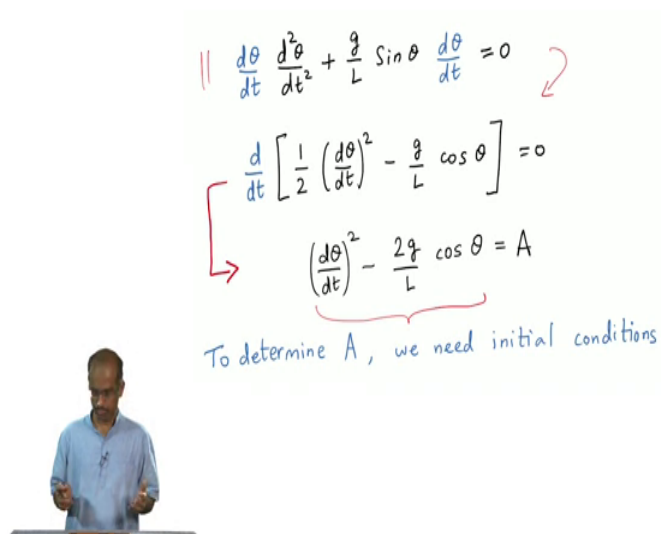 || dθ/dt d²θ/dt² + g/L Sin θ dθ/dt = 0
d/dt [ 1/2 (dθ/dt)² - g/L cos θ ] = 0
(dθ/dt)² - 2g/L cos θ = A
To determine A, we need initial conditions